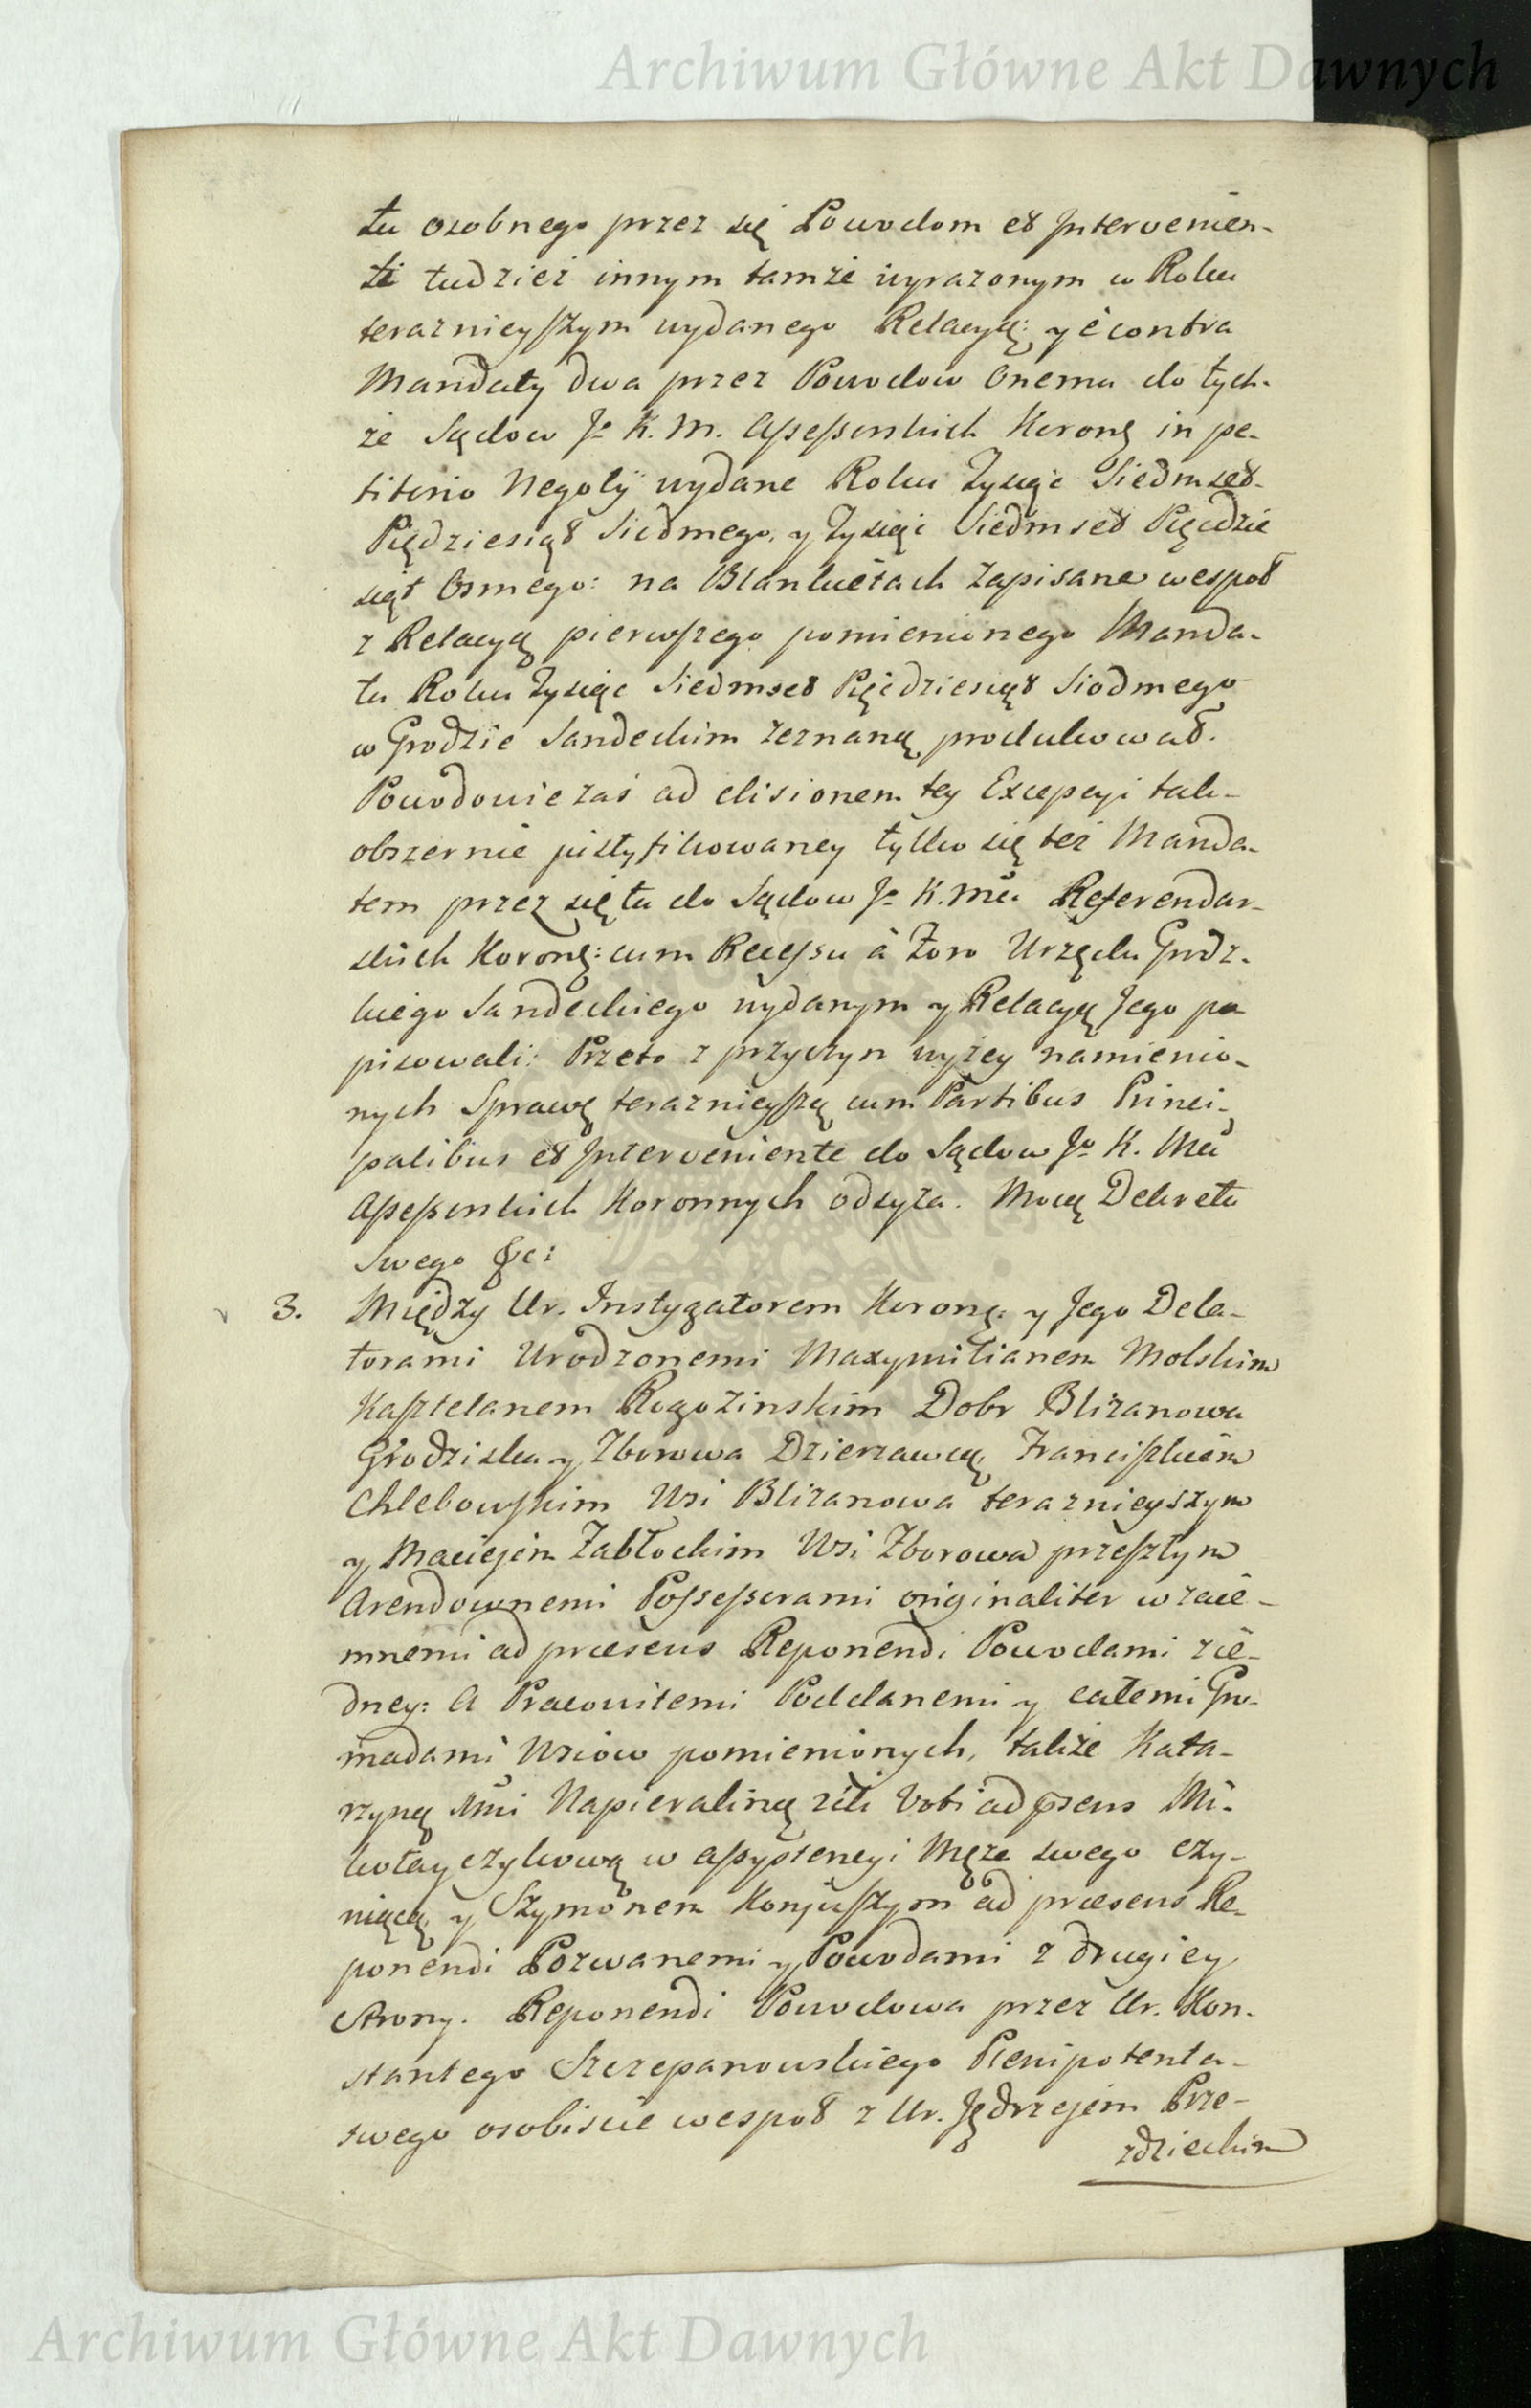 Archiwum Główne Akt Dawnych
tu osobnego przez się Powodom et Intervenien-
ti tudzież innym tamże wyrazonym w Roku
teraznieyszym wydanego Relacyą: y è contra
Mandaty dwa przez Powodow Onemu do tych-
że Sądow Jo K. M. Assessorskich Koronn: in pe-
titorio Negotij wydane Roku Tysiąc Siedmset-
Piędziesiąt Siedmego, y Tysiąc Siedmset Pięcdzie
siąt Osmego: na Blankietach zapisane wespoł
z Relacyą pierwszego pomienionego Manda-
tu Roku Tysiąc Siedmset Pięcdziesiąt Siodmego
w Grodzie Sandeckim zeznaną produkował.
Powodowie zaś ad elisionem tey Excepcyi tak-
obszernie justyfikowaney tylko się też Manda-
tem przez się tu do Sądow Jo K. Mci Referendar-
skich Koronn: cum Recessu à Foro Urzędu Grodz-
kiego Sandeckiego wydanym y Relacyą Jego po
pisowali: Przeto z przyczyn wyżey namienio-
nych Sprawę teraznieyszą cum Partibus Princi-
palibus et Interveniente do Sądow Jo K. Mci
Assessorskich Koronnych odsyła. Mocą Dekretu
Swego &c:
3. Między Ur. Instygatorem Koronn: y Jego Dela-
torami Urodzonemi Maxymilianem Molskim
Kasztelanem Rogozinskim Dobr Blizanowa
Grodziska y Zborowa Dzierzawcą, Franciszkiem
Chlebowskim Wsi Blizanowa teraznieyszym
y Maciejem Zabłockim Wsi Zborowa przeszłym
Arendownemi Possessorami originaliter wzaie-
mnemi ad præsens Reponendi Powodami z ie-
dney: A Pracowitemi Poddanemi y całemi Gro-
madami Wsiow pomienionych, także Kata-
rzyną Napieraliną ad præsens Mi-
kołayczykową w assystencyi Męża swego czy-
niącą, y Szymonem Konjuszym ad præsens Re-
ponendi Pozwanemi y Powodami z drugiey
strony. Reponendi Powodowa przez Ur. Kon-
stantego Szczepanowskiego Plenipotenta-
swego osobiscie wespoł z Ur. Jędrzejem Prze-
zdzieckim
Archiwum Główne Akt Dawnych